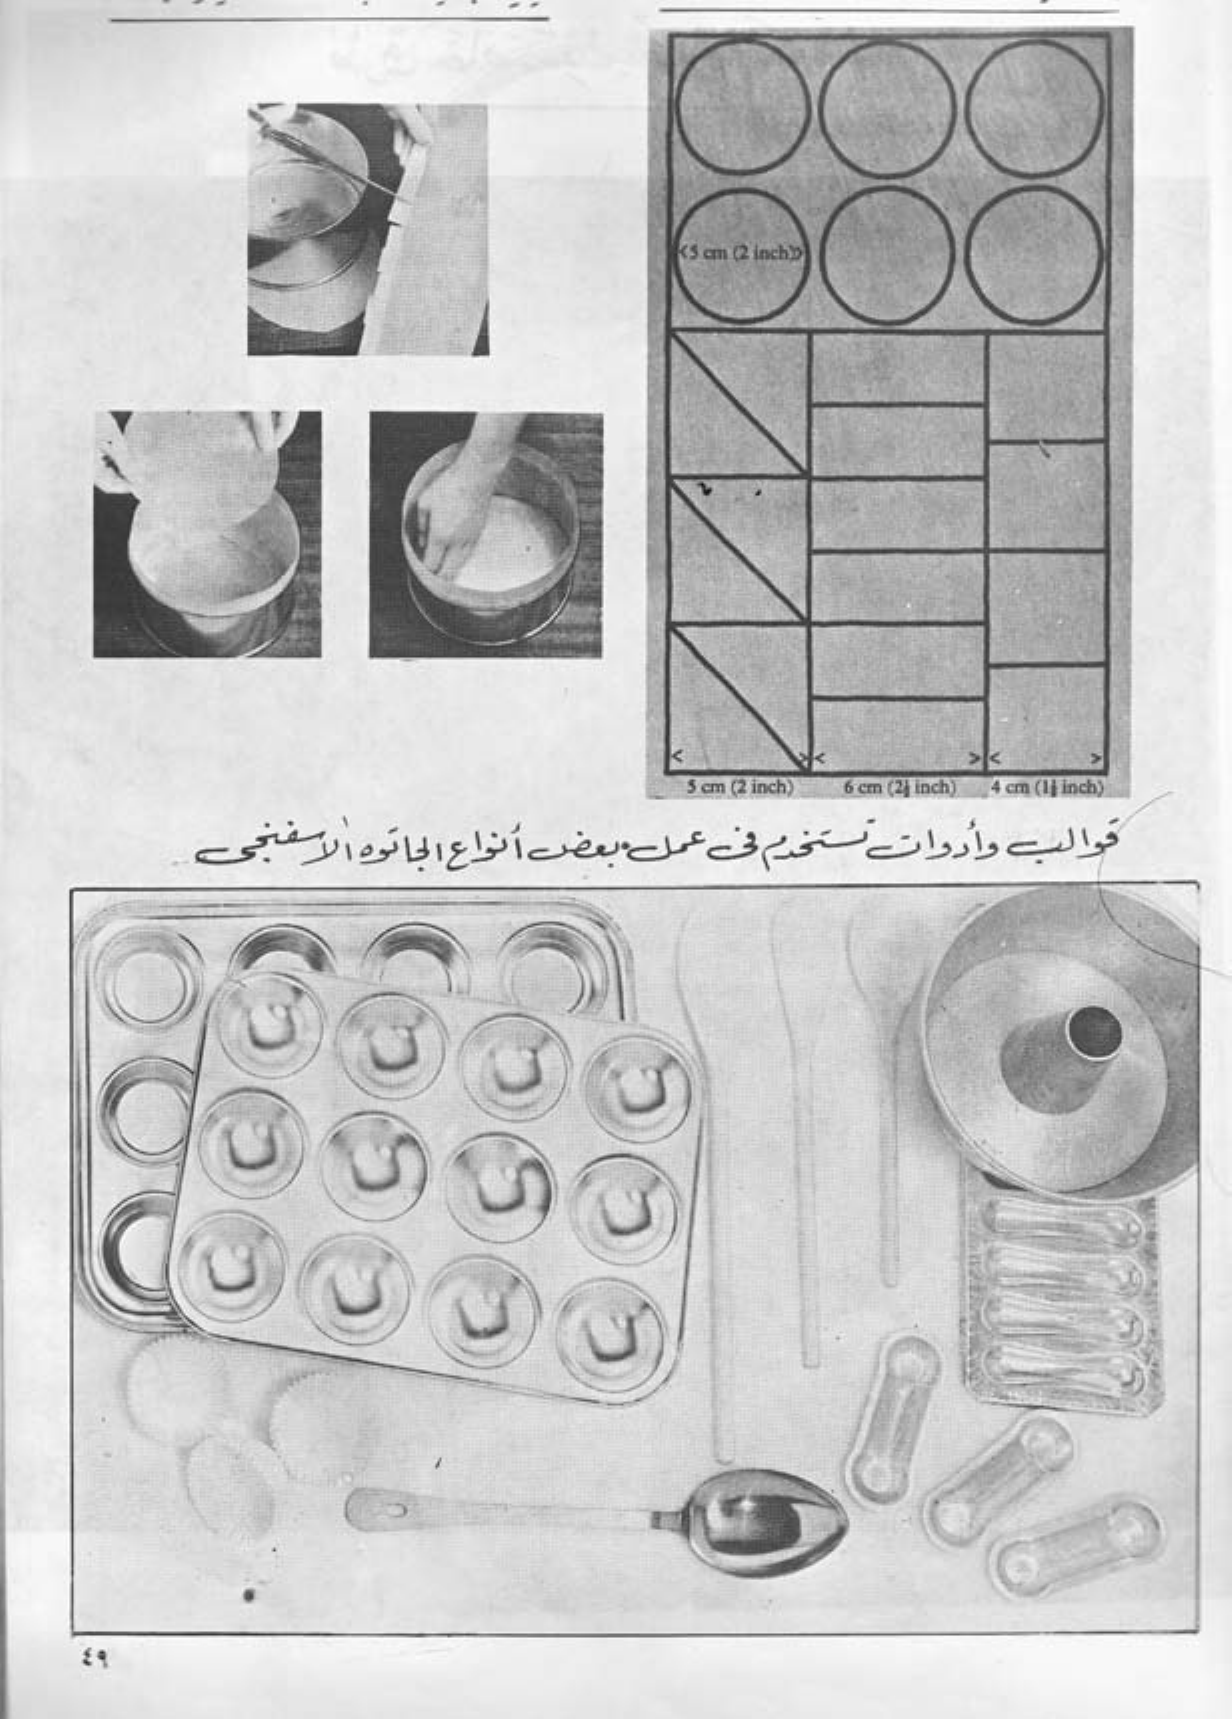 <5 cm (2 inch)>
5 cm (2 inch)
6 cm (2½ inch)
4 cm (1½ inch)
قوالب وأدوات تستخدم فى عمل بعض أنواع الجاتوه الاسفنجى
٤٩